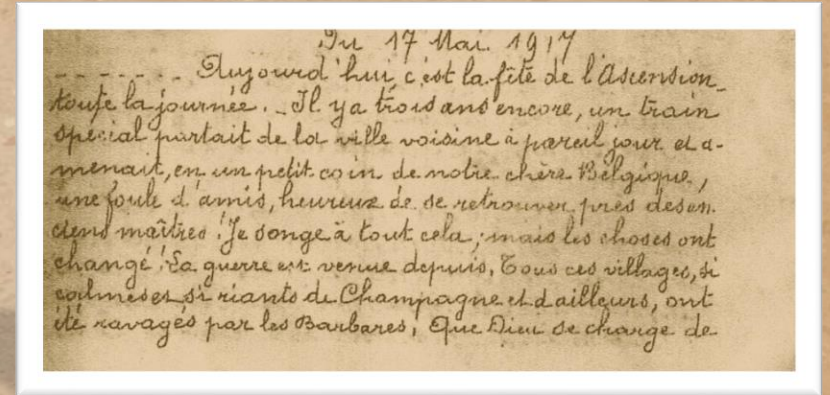 Du 17 Mai. 1917
- - - - - - - Aujourd'hui, c'est la fête de l'Ascension_
toute la journée. _ Il y a trois ans encore, un train
spécial partait de la ville voisine à pareil jour et a-
menait, en un petit coin de notre chère Belgique,
une foule d'amis, heureux de se retrouver près des an-
ciens maîtres! Je songe à tout cela, mais les choses ont
changé! La guerre est venue depuis, Tous ces villages, si
calmes et si riants de Champagne et d'ailleurs, ont
été ravagés par les Barbares, Que Dieu se charge de